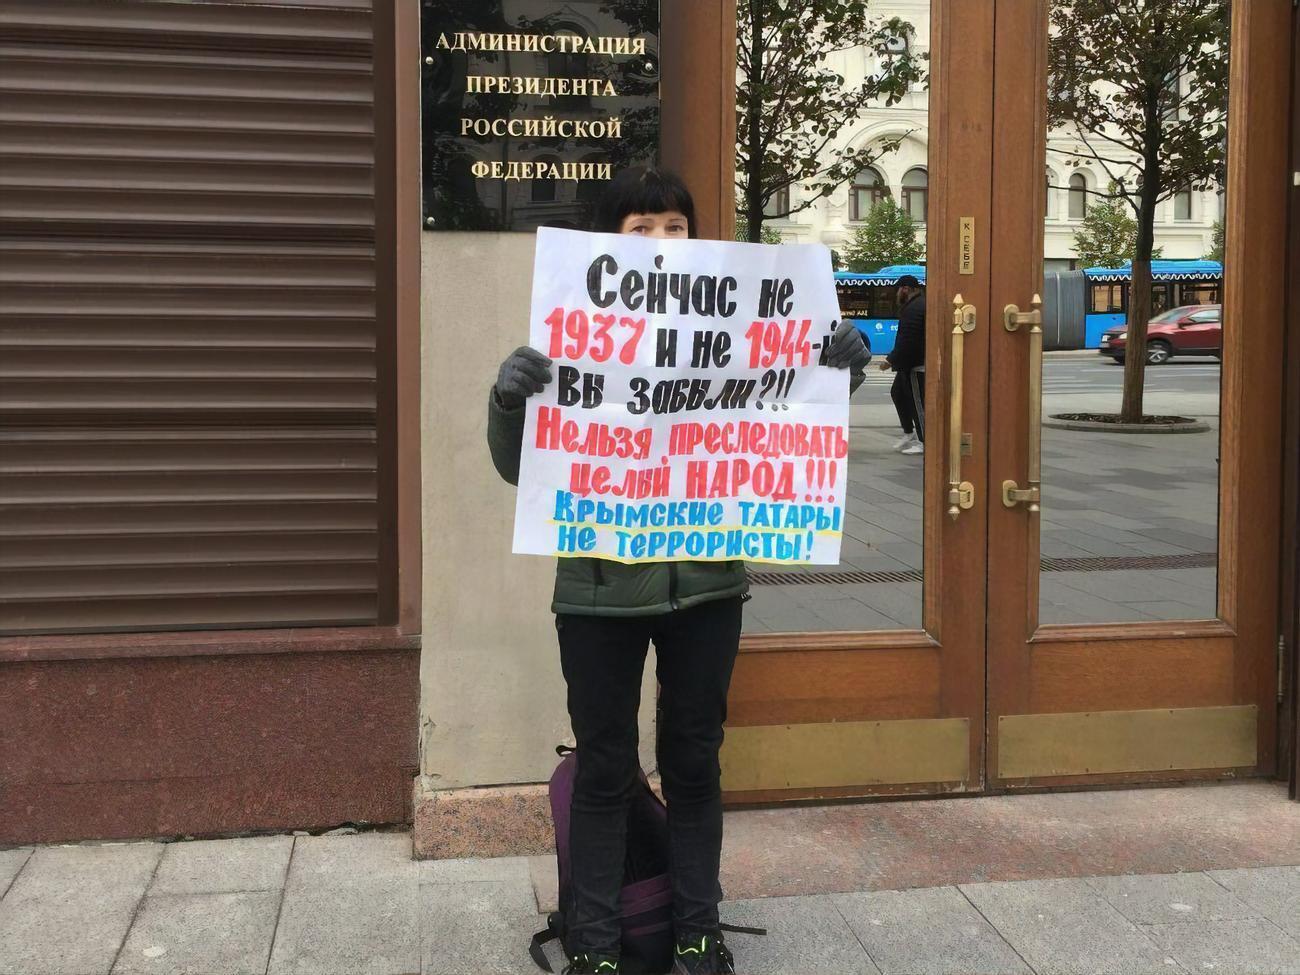 АДМИНИСТРАЦИЯ
ПРЕЗИДЕНТА
РОССИЙСКОЙ
ФЕДЕРАЦИИ
Сейчас не
1937 и не 1944-й
Вы забыли?!!
Нельзя преследовать
целый НАРОД!!!
Крымские татары
не террористы!
К СЕБЕ